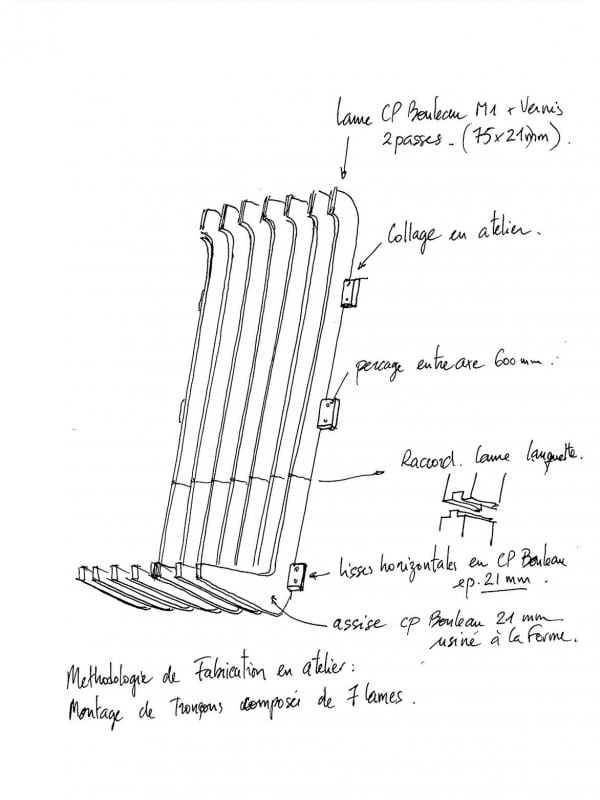 Lame CP Bouleau M1 + Vernis
2 passes - (75 x 21mm).
Collage en atelier.
percage entre axe 600mm.
Raccord. lame languette.
lisses horizontales en CP Bouleau
ep. 21 mm.
assise CP Bouleau 21 mm
usiné à la Forme.
Methodologie de Fabrication en atelier :
Montage de Tronçons composée de 7 lames.